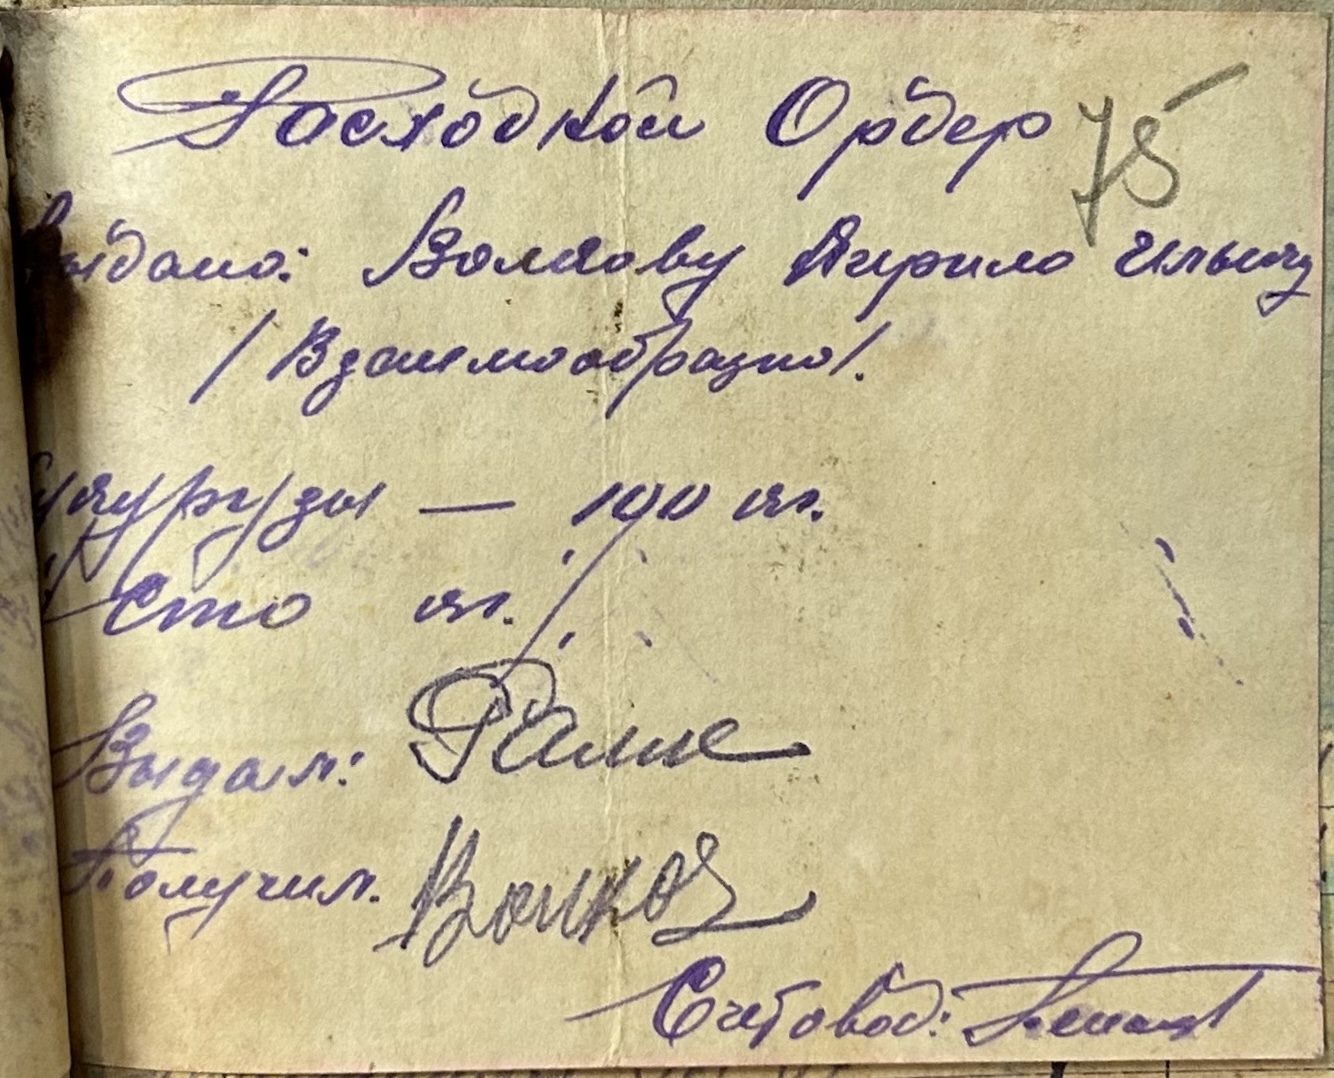 Расходной Ордер 75
Выдано: Волкову Кирило Ильичу
/Взаимообразно/.
Кукурузы — 100 кг.
Сто кг.
Выдал:
Получил. Волков
Счетовод: